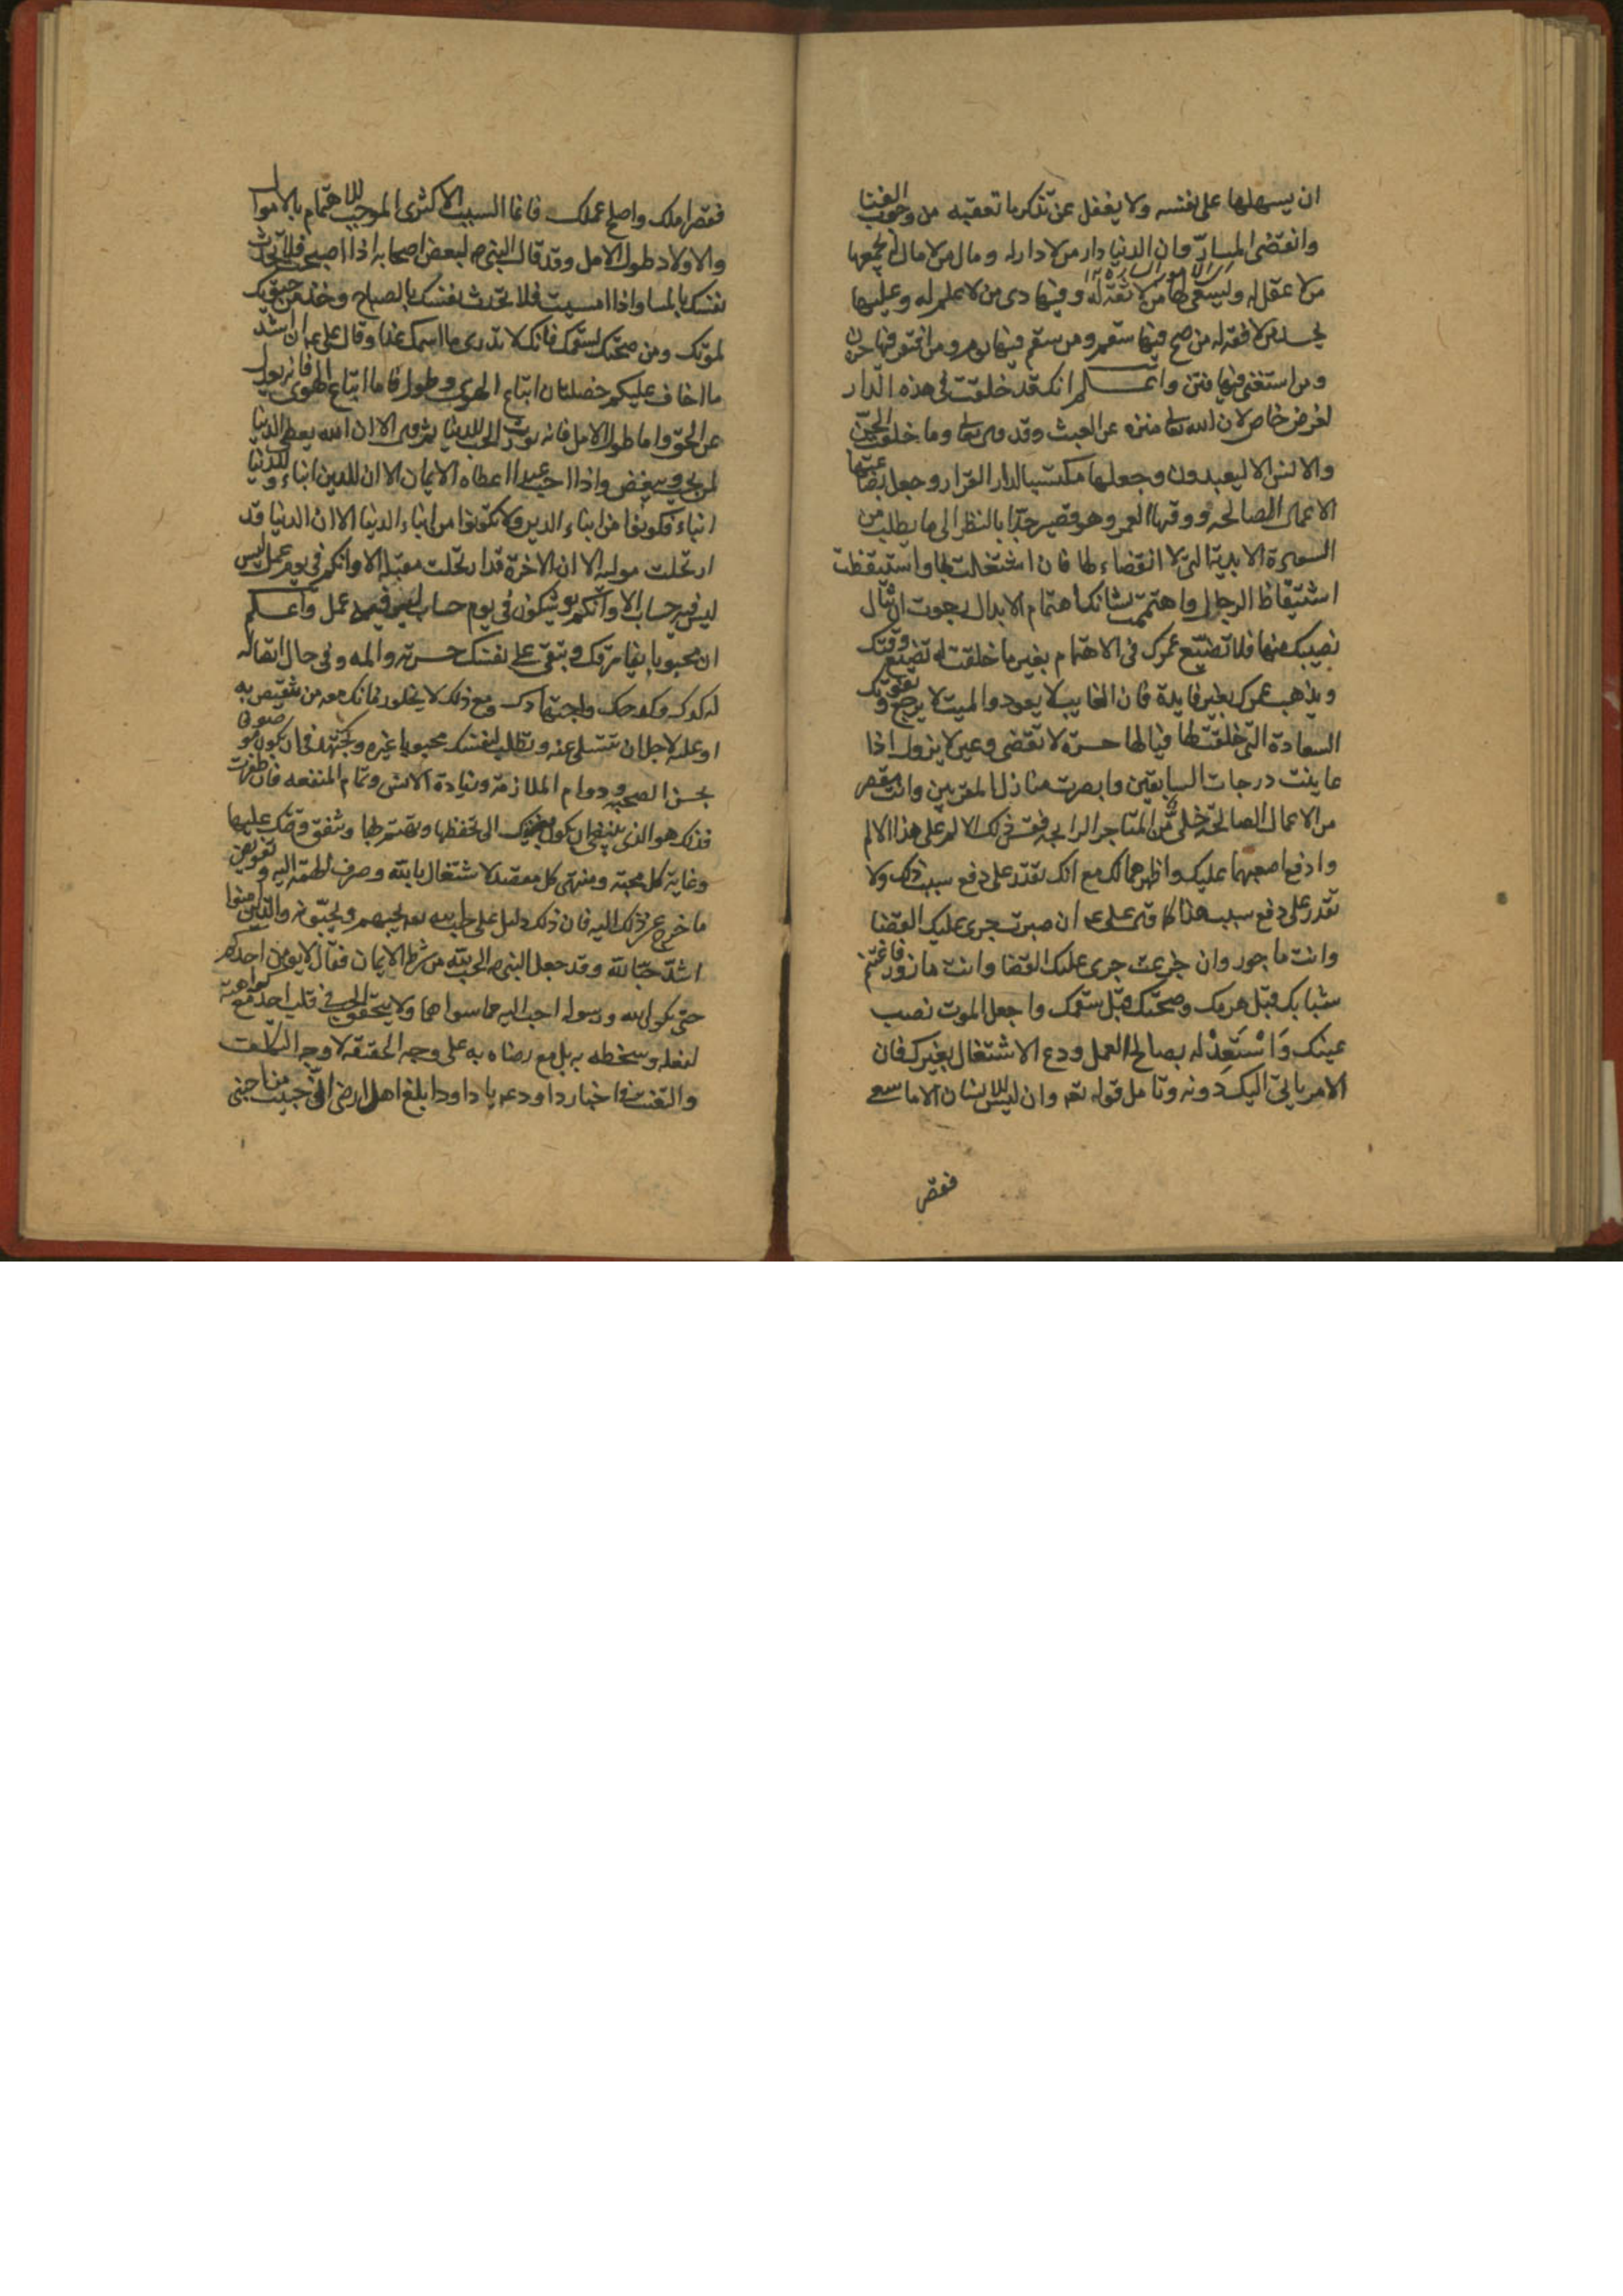 ان يسهلها على نفسه ولا يغفل عن تذكر ما تعقبه من وجوب الفنا
وانقضى المسارّ وان الدنيا دار من لا دار له ومال من لا مال له يجمعها
من لا عقل له ويسعى لها من لا ثقة له وفيها دى من لا علم له وعليها
يحسد من لا فقه له من صح فيها سقم ومن سقم فيها برم ومن افتقر فيها حزن
ومن استغنى فيها فتن واعلم انك قد خلقت في هذه الدار
لغرض خاص لان الله تعالى منزه عن العبث وقد قال تعالى وما خلقت الجن
والانس الا ليعبدون وجعلها مكتسبا لدار القرار وجعل بضاعتها
الاعمال الصالحه ووقتها العمر وهو قصير جدّا بالنظر الى ما يطلب من
السعادة الابدية التي لا انقضاء لها فان اشتغلت بها واستيقظت
استيقاظ الرجال واهتممت بشانك اهتمام الابدال رجوت ان تنال
نصيبك منها فلا تضيّع عمرك في الاهتمام بغير ما خلقت له تضيع وقتك
ويذهب عمرك بغير فايدة فان الغايب لا يعود والميت لا يرجع وتفوتك
السعادة التي خلقت لها فيالها حسرة لا تقضى وغبن لا يزول اذا
عاينت درجات السابقين وابصرت منازل المقربين وانت مقصر
من الاعمال الصالحة خلىّ من المتاجر الرابحه فقس ذلك الالم على هذا الالم
وادفع اصعبهما عليك واظرهما لك مع انك تقدر على دفع سبب ذلك ولا
تقدر على دفع سبب هذا كما قال على ع ان صبرت جرى عليك القضا
وانت ماجور وان جزعت جرى عليك القضا وانت مازور فاغتنم
شبابك قبل هرمك وصحتك قبل سقمك واجعل الموت نصب
عينك وَاسْتَعِدْ له بصالح العمل ودع الاشتغال بغيرك فان
الامر ياتي اليك دونه وتامل قوله تعه وان ليس للانسان الا ما سعى
فقصر
فقصر املك واصلح عملك فانما السبب الاكثرى الموجب للاهتمام بالاموال
والاولاد طول الامل وقد قال النبي ص لبعض اصحابه اذا اصبحت فلا تحدث
نفسك بالمسا واذا امسيت فلا تحدث نفسك بالصباح وخذ من حيوتك
لموتك ومن صحتك لسقمك فانك لا تدرى ما اسمك غدا وقال على ع ان اشد
ما اخاف عليكم خصلتان اتباع الهوى وطول الامل فاما اتباع الهوى فانه يعدل
عن الحق واما طول الامل فانه يورث الحب للدنيا ثم قال الا ان الله يعطى الدنيا
لمن يحب ويبغض واذا احب عبدا اعطاه الايمان الا ان للدين ابناء وللدنيا
ابناء فكونوا من ابناء الدين ولا تكونوا من ابناء الدنيا الا ان الدنيا قد
ارتحلت موليه الا ان الاخرة قد ارتحلت مقبله الا وانكم في يوم عمل ليس
ليس فيه حساب الا وانكم يوشك في يوم حساب ليس فيه عمل واعلم
ان محبوبا يفارقك وتبقى على نفسك حسرته والمه وفي حال اتصاله
له كدك وكدحك واجتهادك ومع ذلك لا يخلو زمانك معه من تنغيص به
او عليه لاجل ان تتسلى عنه وتطلب لنفسك محبوبا غيره وتجتهد في ان يكون موصوفا
بحسن الصحبه ودوام الملازمة وزيادة الانس وتمام المنفعه فان ظفرت به
فذلك هو الذى ينبغي ان يكون بغيتك التي تحفظها وتهتم لها وتنفق وقتك عليها
وغاية كل محبة ومنتهى كل مقصد الاشتغال بالله وصرف الهمة اليه وتفويض
ما خرج عن ذلك اليه فان ذلك دليل على حب الله تعه يحبهم ويحبّونه والذين امنوا
اشدّ حبّا لله وقد جعل النبي ص الحب لله من شرط الايمان فقال لا يؤمن احدكم
حتى يكون الله ورسوله احب اليه مما سواهما ولا يتحقق الحب في قلب احد مع كراهية
لفعله وسخطه به بل مع رضاه به على وجه الحقيقة لا وجه التكلف
والتعنت في اخبار داود ع يا داود ابلغ اهل ارضى انى حبيب من احبنى